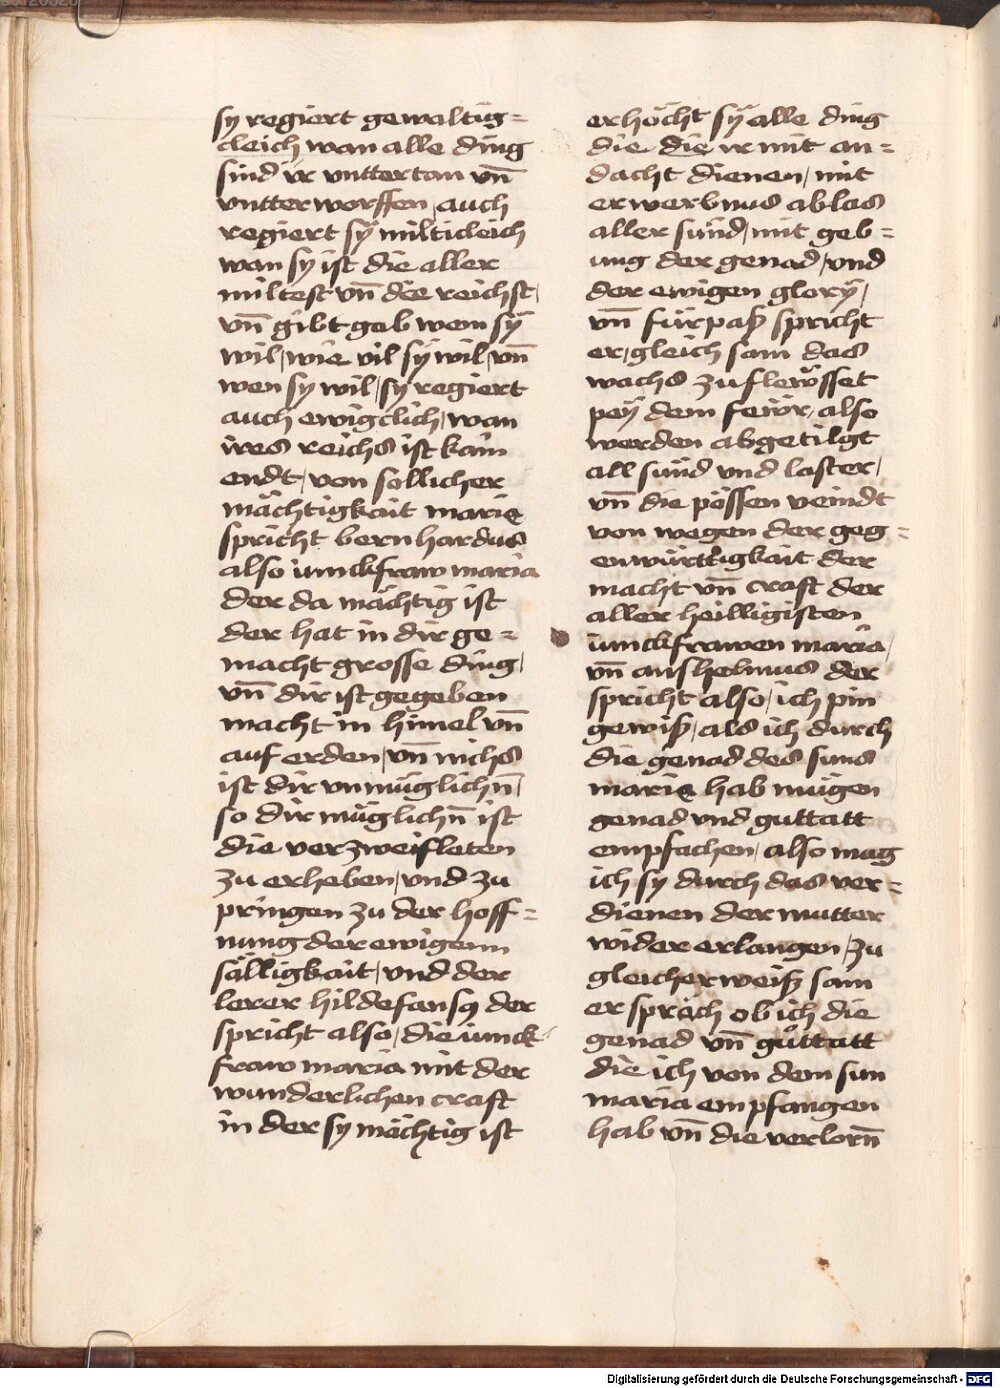 sy regiert gewaltig=
cleich wan alle ding
sind ir vnttertan vn̄
vntterworffen / auch
regiert sÿ milticleich
wan sy ist die aller
miltest vn̄ die reichst /
vn̄ gibt gab wem sÿ
wil / wie vil sÿ wil / vn̄
wen sy wil / sy regiert
auch ewigclich / wan
ires reichs ist kain
endt / von sollicher
mächtigkait marie
spricht bernhardus
also iunckfraw maria
der da mächtig ist
der hat in dir ge=
macht grosse ding /
vn̄ dir ist gegeben
macht in himel vn̄
auf erden / vn̄ nichs
ist dir vnmüglichn̄ /
so dir müglichn̄ ist
die verzweifleten
zu erheben / vnd zu
pringen zu der hoff=
nung der ewigenn
sälligkait / vnd der
lerer hildefansꝯ der
spricht also / die iunck=
fraw maria mit der
wunderlichen craft
in der sy mächtig ist
erhöcht sÿ alle ding
die die ir mit an=
dacht dienen / mit
erwerbnus ablas
aller sünd / mit geb=
ung der genad / vnd
der ewigen glorÿ /
vn̄ fürpaß spricht
er / gleich sam das
wachs zuflewsset
peÿ dem feẅr / also
werden abgetilgt
all sünd vnd laster /
vn̄ die pössen veindt
von wegen der geg=
enwürttigkait der
macht vn̄ craft der
aller heilligisten
iunckfrawen maria /
vn̄ anshelmus der
spricht also / ich pin
gewiß / als ich durch
die genad des suns
marie hab mügen
genad vnd guttatt
empfachen / also mag
ich sy durch das ver=
dienen der mutter
wider erlangen / zu
gleicher weiß sam
er spräch ob ich die
genad vn̄ güttatt
die ich von dem sun
maria empfangen
hab vn̄ die verlorn̄
Digitalisierung gefördert durch die Deutsche Forschungsgemeinschaft - DFG